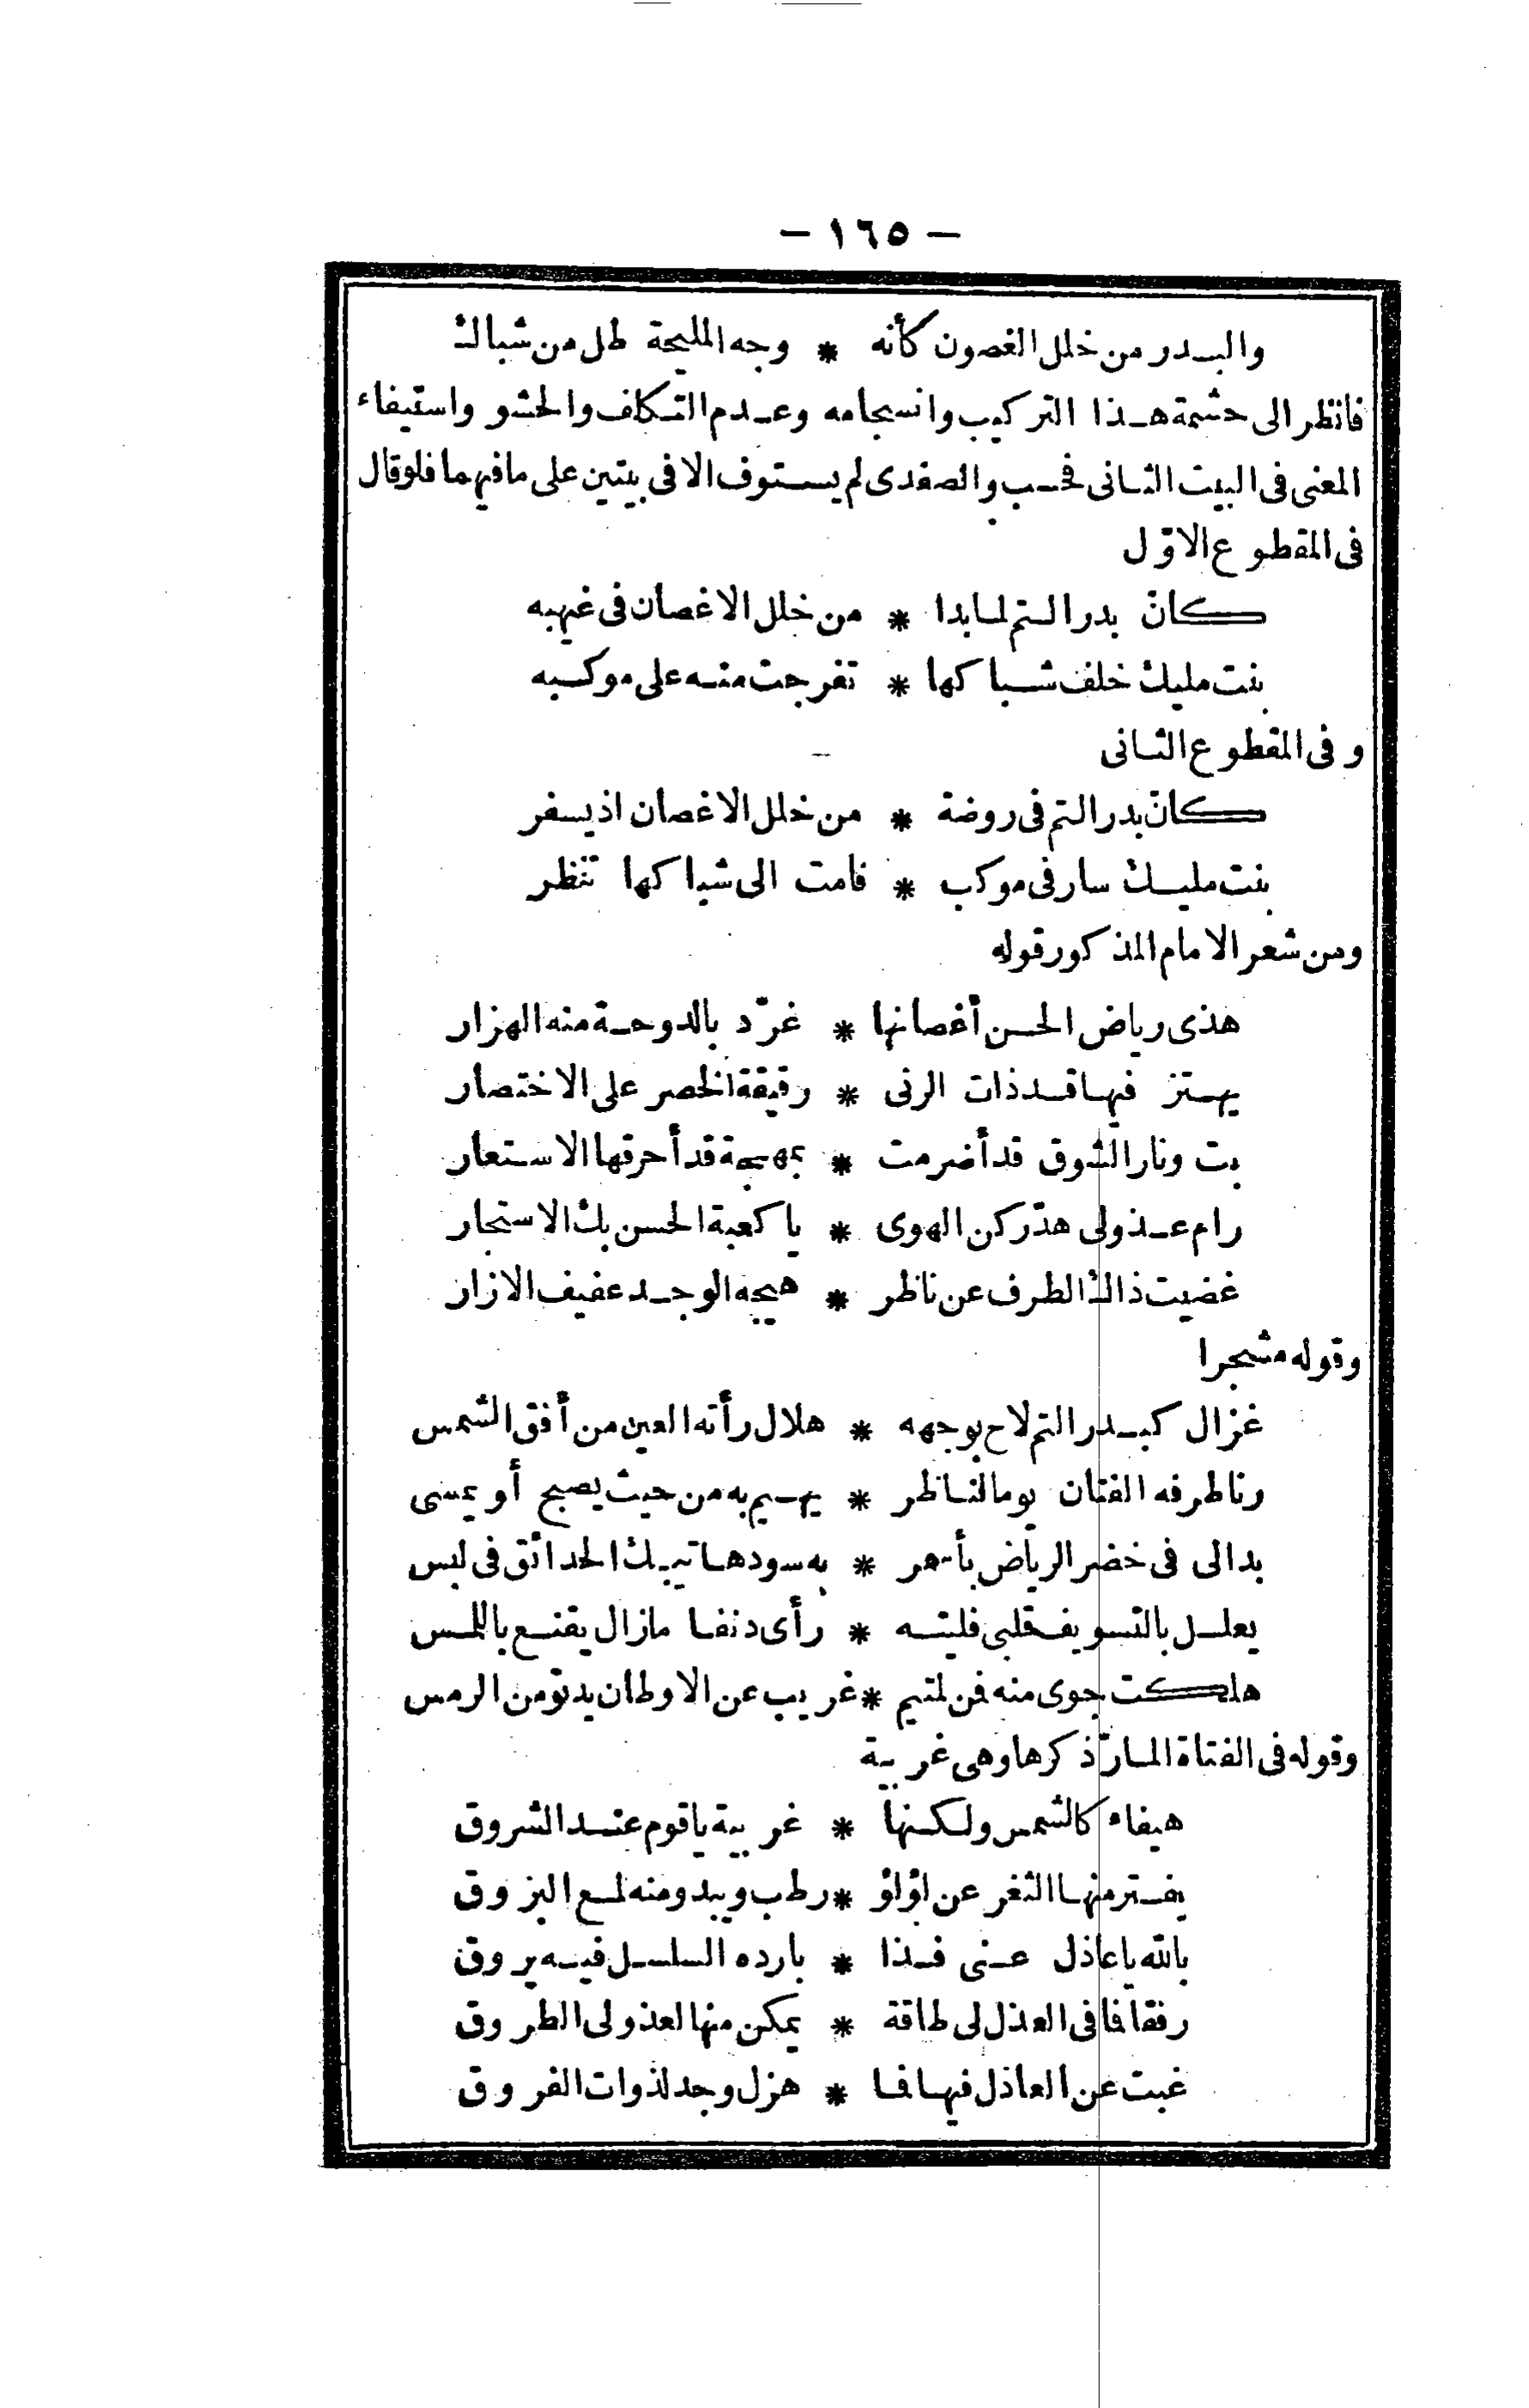 — ١٦٥ —
والبدر من خلل الغصون كأنه * وجه المليحة طل من شباك
فانظر الى حشمة هذا التركيب وانسجامه وعدم التكلف والحشو واستيفاء
المعنى فى البيت الثانى فحسب والصفدى لم يستوف الا فى بيتين على ما فيهما فلو قال
فى المقطوع الاوّل
كانّ بدر التم لما بدا * من خلل الاغصان فى غيهبه
بنت مليك خلف شباكها * تفرجت منه على موكبه
وفى المقطوع الثانى
كانّ بدر التم فى روضة * من خلل الاغصان اذ يسفر
بنت مليك سار فى موكب * قامت الى شباكها تنظر
ومن شعر الامام المذكور قوله
هذى رياض الحسن أغصانها * غرّد بالدوحة منه الهزار
يهتز فيها قد ذات الرنى * رقيقة الخصر على الاختصار
بت ونار الشوق قد أضرمت * بمهجة قد أحرقها الاستعار
رام عذولى هدّ ركن الهوى * يا كعبة الحسن بك الاستجار
غضيت ذاك الطرف عن ناظر * هيجه الوجد عفيف الازار
وقوله مشجرا
غزال كبدر التم لاح بوجهه * هلال رأته العين من أفق الشمس
رنا طرفه الفتان يوما لناظر * يهيم به من حيث يصبح أو يمسى
بدا لى فى خضر الرياض بأسمر * به سودها تيك الحدائق فى لبس
يعلل بالتسويف قلبى فليته * رأى دنفا مازال يقنع باللمس
هلكت جوى منه فمن لمتيم * غريب عن الاوطان يدنو من الرمس
وقوله فى الفتاة المارّ ذكرها وهى غربية
هيفاء كالشمس ولكنها * غربية يا قوم عند الشروق
يفتر منها الثغر عن لؤلؤ * رطب ويبدو منه لمع البروق
بالله يا عاذل عنى فذا * بارده السلسل فيه يروق
رفقا فما فى العذل لى طاقة * يمكن منها لعذولى الطروق
غبت عن العاذل فيها فما * هزل وجد لذوات الفروق